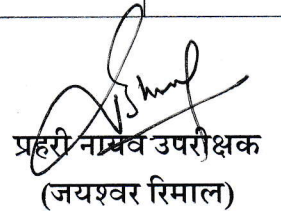 प्रहरी नायव उपरीक्षक
(जयश्वर रिमाल)